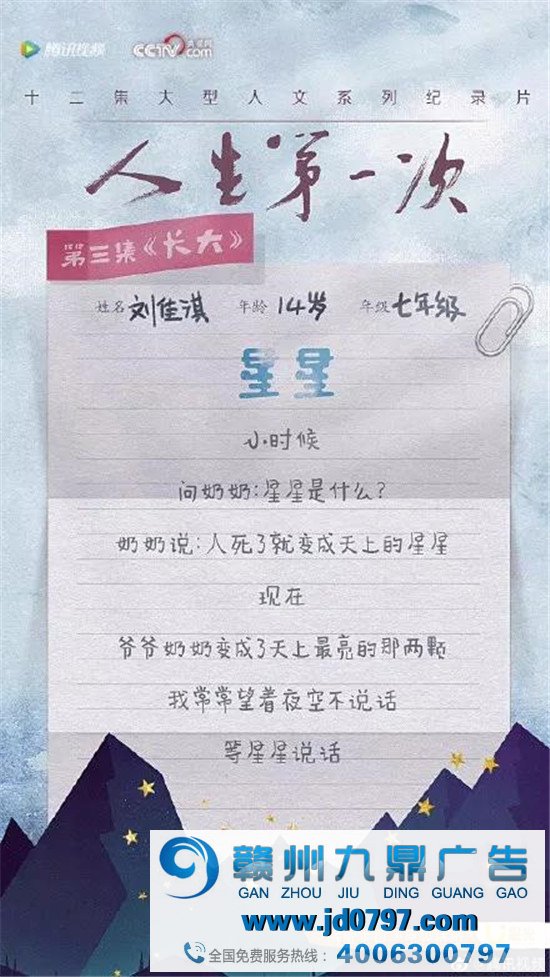 腾讯视频 CCTV.com
十二集大型人文系列纪录片
人生第一次
第三集《长大》
姓名 刘佳淇 年龄 14岁 年级 七年级
星星
小时候
问奶奶:星星是什么?
奶奶说:人死了就变成天上的星星
现在
爷爷奶奶变成了天上最亮的那两颗
我常常望着夜空不说话
等星星说话
赣州九鼎广告
GAN ZHOU JIU DING GUANG GAO
www.jd0797.com
全国免费服务热线: 4006300797